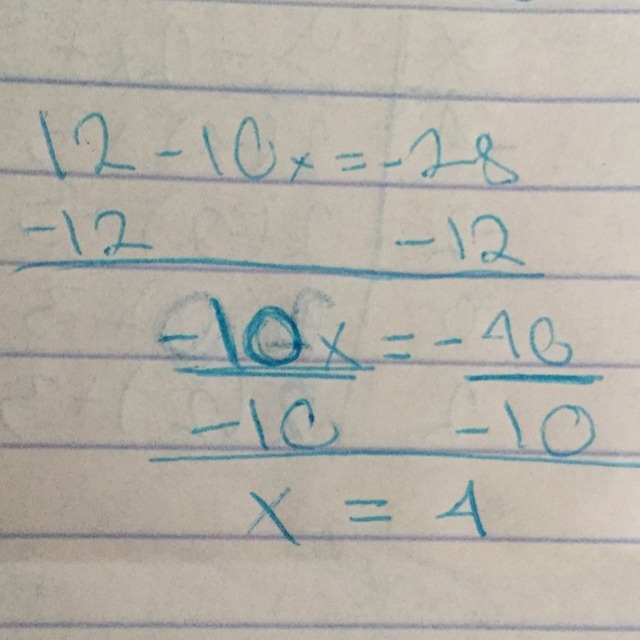 12 - 10x = -28
-12 -12
-10x = -40
-10 -10
x = 4